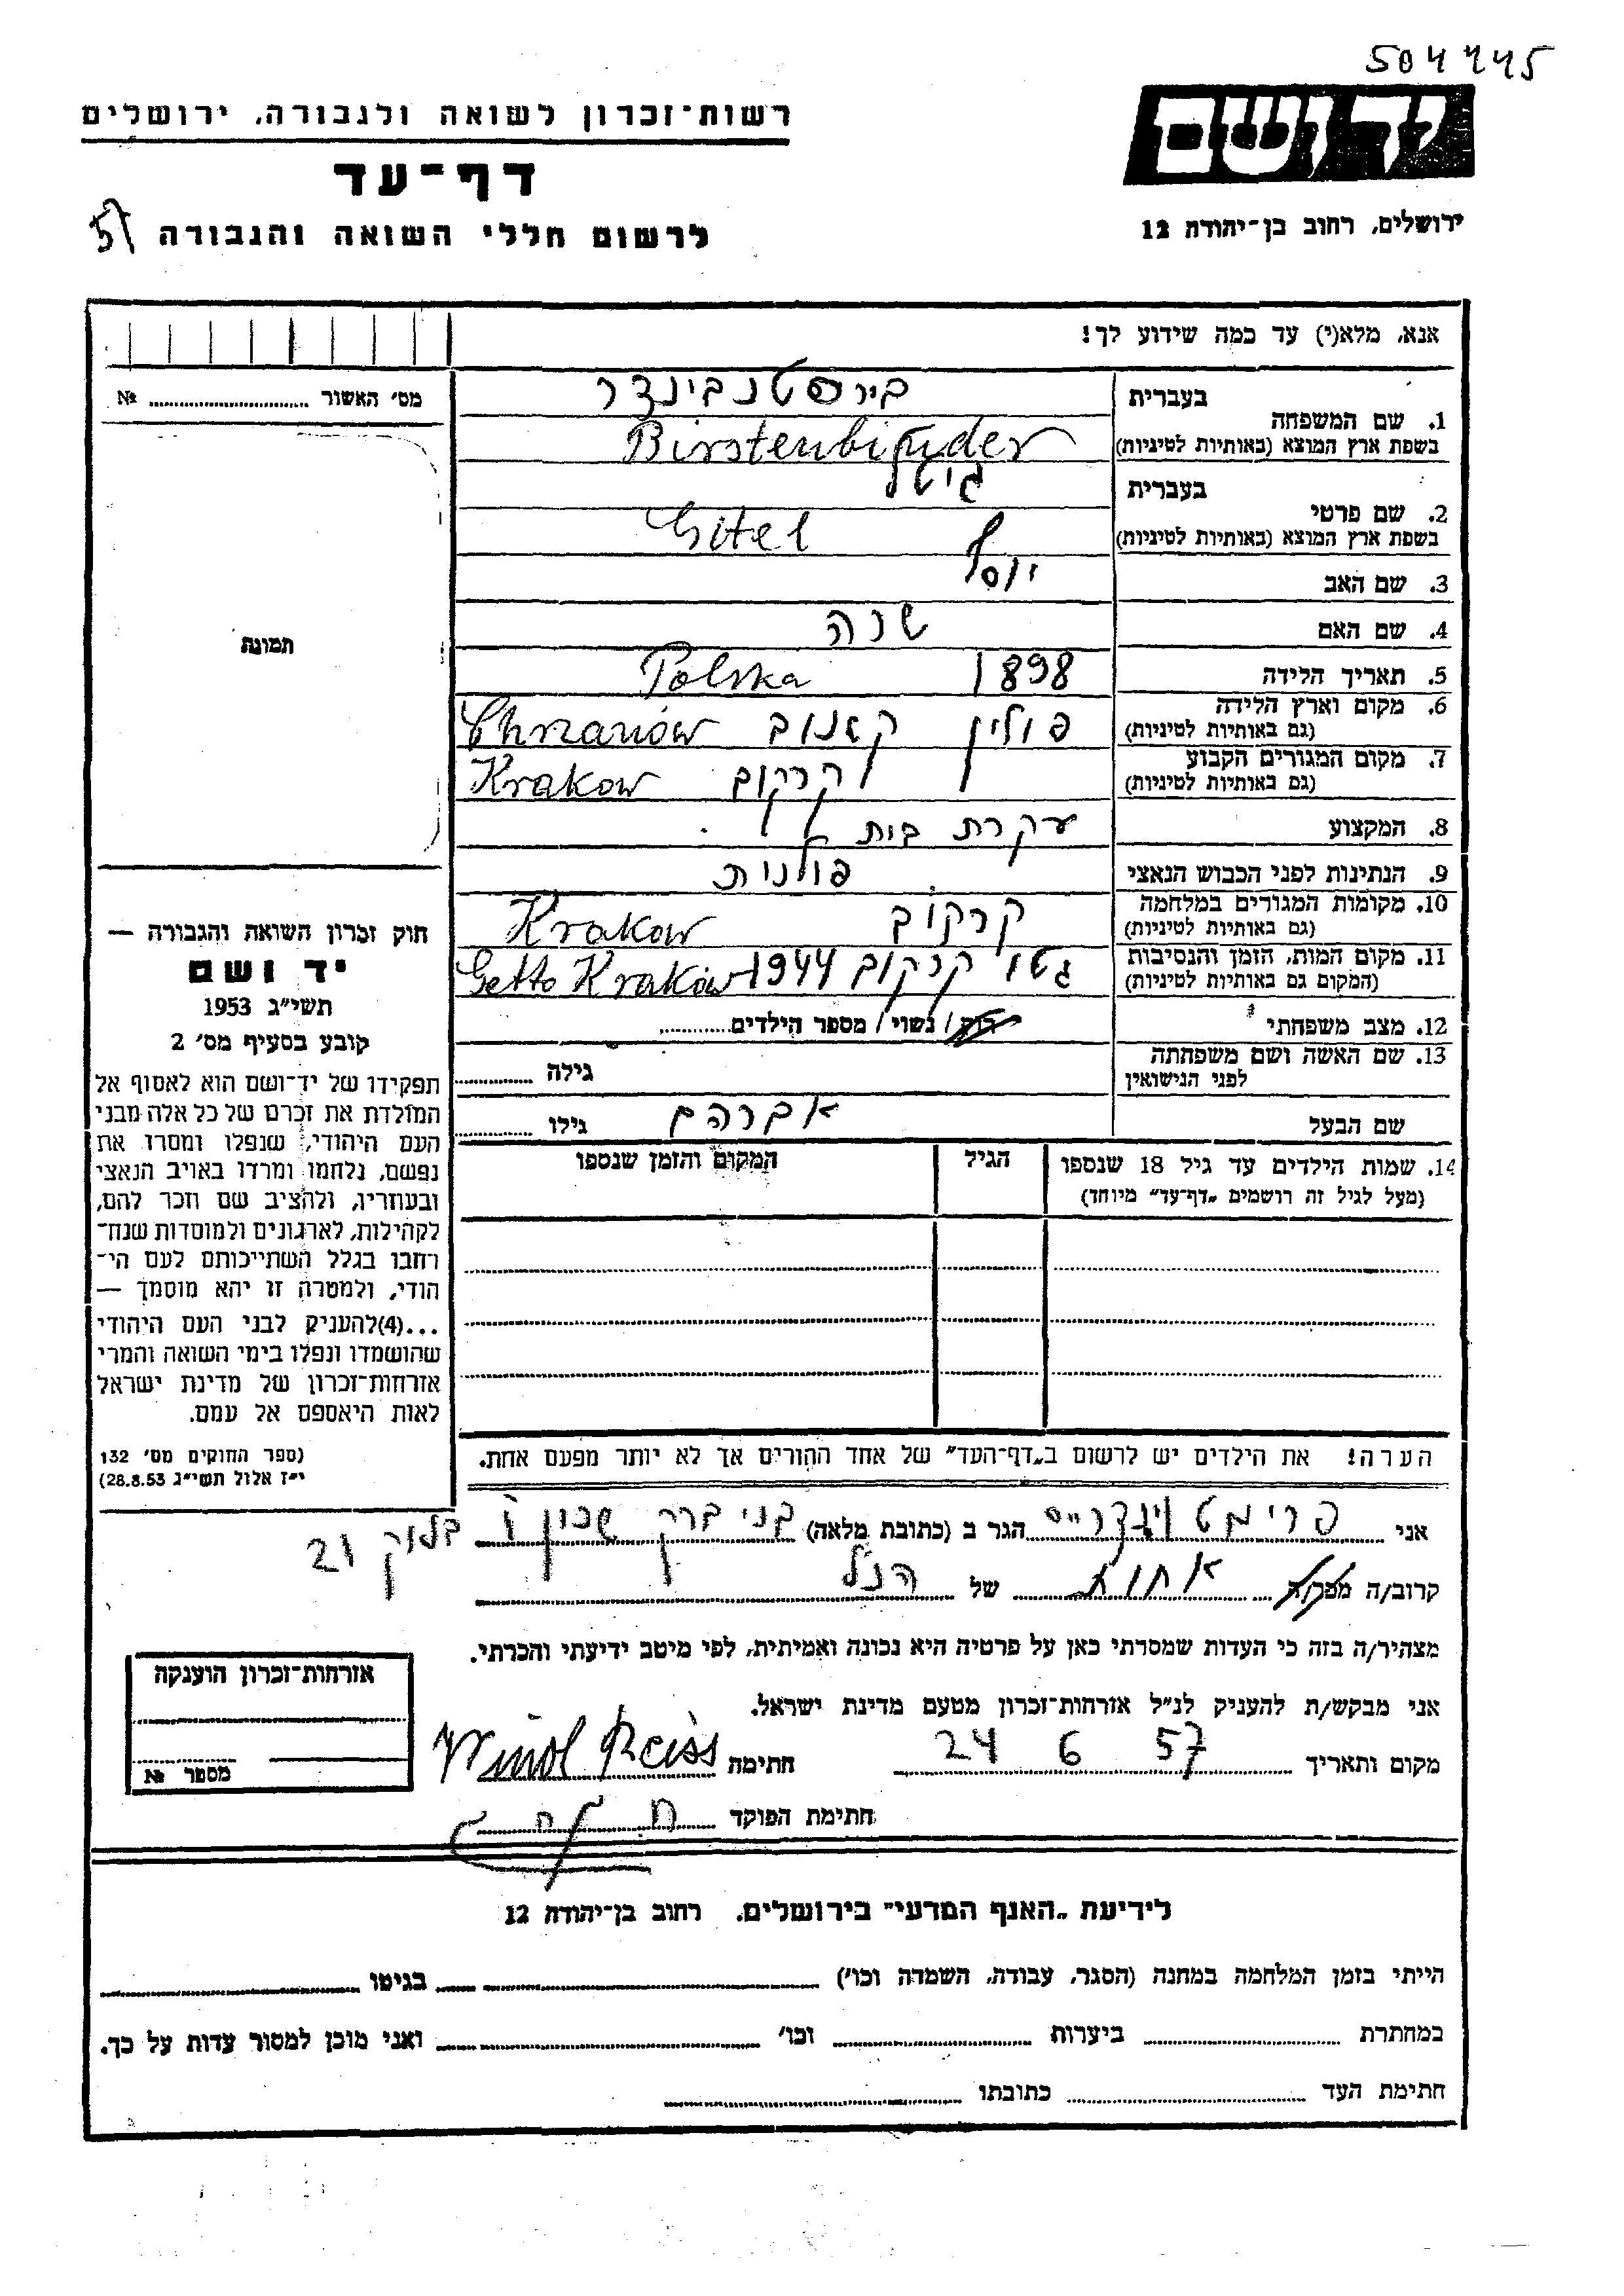 504445
יד ושם
ירושלים, רחוב בן-יהודה 12
רשות-זכרון לשואה ולגבורה, ירושלים
דף-עד
לרשום חללי השואה והגבורה
57
אנא, מלא(י) עד כמה שידוע לך!
מס' האשור № 
תמונה
חוק זכרון השואה והגבורה —
יד ושם
תשי"ג 1953
קובע בסעיף מס' 2
תפקידו של יד-ושם הוא לאסוף אל
המולדת את זכרם של כל אלה מבני
העם היהודי, שנפלו ומסרו את
נפשם, נלחמו ומרדו באויב הנאצי
ובעוזריו, ולהציב שם וזכר להם,
לקהילות, לארגונים ולמוסדות שנח-
רחבו בגלל השתייכותם לעם הי-
הודי, ולמטרה זו יהא מוסמך —
...(4)להעניק לבני העם היהודי
שהושמדו ונפלו בימי השואה והמרי
אזרחות-זכרון של מדינת ישראל
לאות היאספם אל עמם.
(ספר החוקים מס' 132
י"ז אלול תשי"ג 28.8.53)
בעברית בירסטנבינדר
1. שם המשפחה
בשפת ארץ המוצא (באותיות לטיניות) Birstenbinder
בעברית גיטל
2. שם פרטי
בשפת ארץ המוצא (באותיות לטיניות) Gitel
3. שם האב יוסף
4. שם האם שרה
5. תאריך הלידה 1898 Polska
6. מקום וארץ הלידה
(גם באותיות לטיניות) פולין Chrzanów
7. מקום המגורים הקבוע
(גם באותיות לטיניות) קרקוב Krakow
8. המקצוע עקרת בית
9. הנתינות לפני הכבוש הנאצי פולנית
10. מקומות המגורים במלחמה
(גם באותיות לטיניות) קרקוב Krakow
11. מקום המות, הזמן והנסיבות
(המקום גם באותיות לטיניות) גטו קרקוב 1944 Getto Kraków
12. מצב משפחתי רוק / נשוי / מספר הילדים
13. שם האשה ושם משפחתה
לפני הנישואין גילה
שם הבעל אברהם גילו
14. שמות הילדים עד גיל 18 שנספו הגיל המקום והזמן שנספו
(מעל לגיל זה רושמים "דף-עד" מיוחד)
הערה! את הילדים יש לרשום ב"דף-העד" של אחד ההורים אך לא יותר מפעם אחת.
אני פרימט הגר ב (כתובת מלאה) בני ברק שכון ו בלוק 21
קרוב/ה מכר/ה אחות של הנ"ל
מצהיר/ה בזה כי העדות שמסרתי כאן על פרטיה היא נכונה ואמיתית, לפי מיטב ידיעתי והכרתי.
אני מבקש/ת להעניק לנ"ל אזרחות-זכרון מטעם מדינת ישראל.
מקום ותאריך 24 6 57 חתימה Reiss
חתימת הפוקד
אזרחות-זכרון הוענקה
מספר №
לידיעת "האגף המדעי" בירושלים, רחוב בן-יהודה 12
הייתי בזמן המלחמה במחנה (הסגר, עבודה, השמדה וכו') בגיטו
במחתרת ביערות וכו' ואני מוכן למסור עדות על כך.
חתימת העד כתובתו